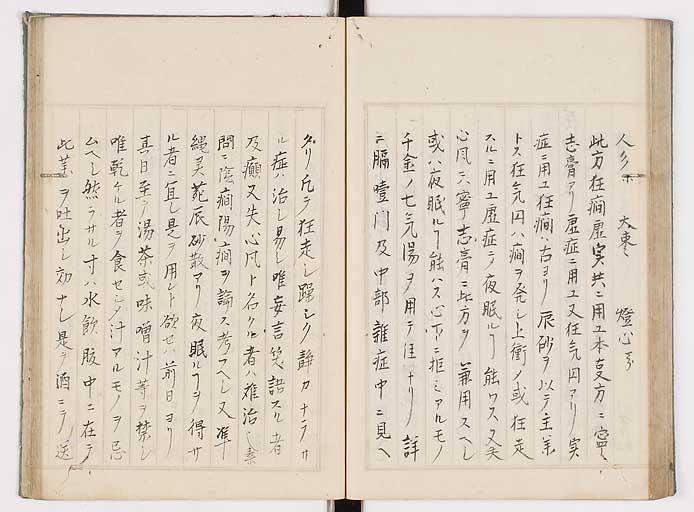 人参 大棗 燈心 分
此方狂癇虚実共ニ用ユ本事方ニ寧
志膏アリ虚症ニ用ユ又狂気円アリ実
症ニ用ユ狂癇ハ古ヨリ辰砂ヲ以テ主薬
トス狂気円ハ癇ヲ発シ上衝ノ或狂走
スルニ用ユ虚症ニテ夜眠ルヿ能ワス又失
心風ニハ寧志膏ニ此方ヲ兼用スヘシ
或ハ夜眠ルヿ能ハス心下ニ拒ミアルモノ
千金ノ七気湯ヲ用テ佳ナリ詳
ニ膈噎門及中部雜症中ニ見ヘ
タリ凡テ狂走シ躁シク静カナラサ
ル症ハ治シ易シ唯妄言笑語スル者
及癲又失心风ト名クル者ハ難治シ素
問ニ陰癇陽癇ヲ論ス考フヘシ又準
繩灵苑辰砂散アリ夜眠ルヿヲ得サ
ル者ニ宜シ是ヲ用ント欲セハ前日ヨリ
真日至テ湯茶或味噌汁等ヲ禁シ
唯乾ケル者ヲ食セシメ汁アルモノヲ忌
ムヘシ然ラサル寸ハ水飲腹中ニ在テ
此薬ヲ吐出シ効ナシ是ヲ酒ニテ送